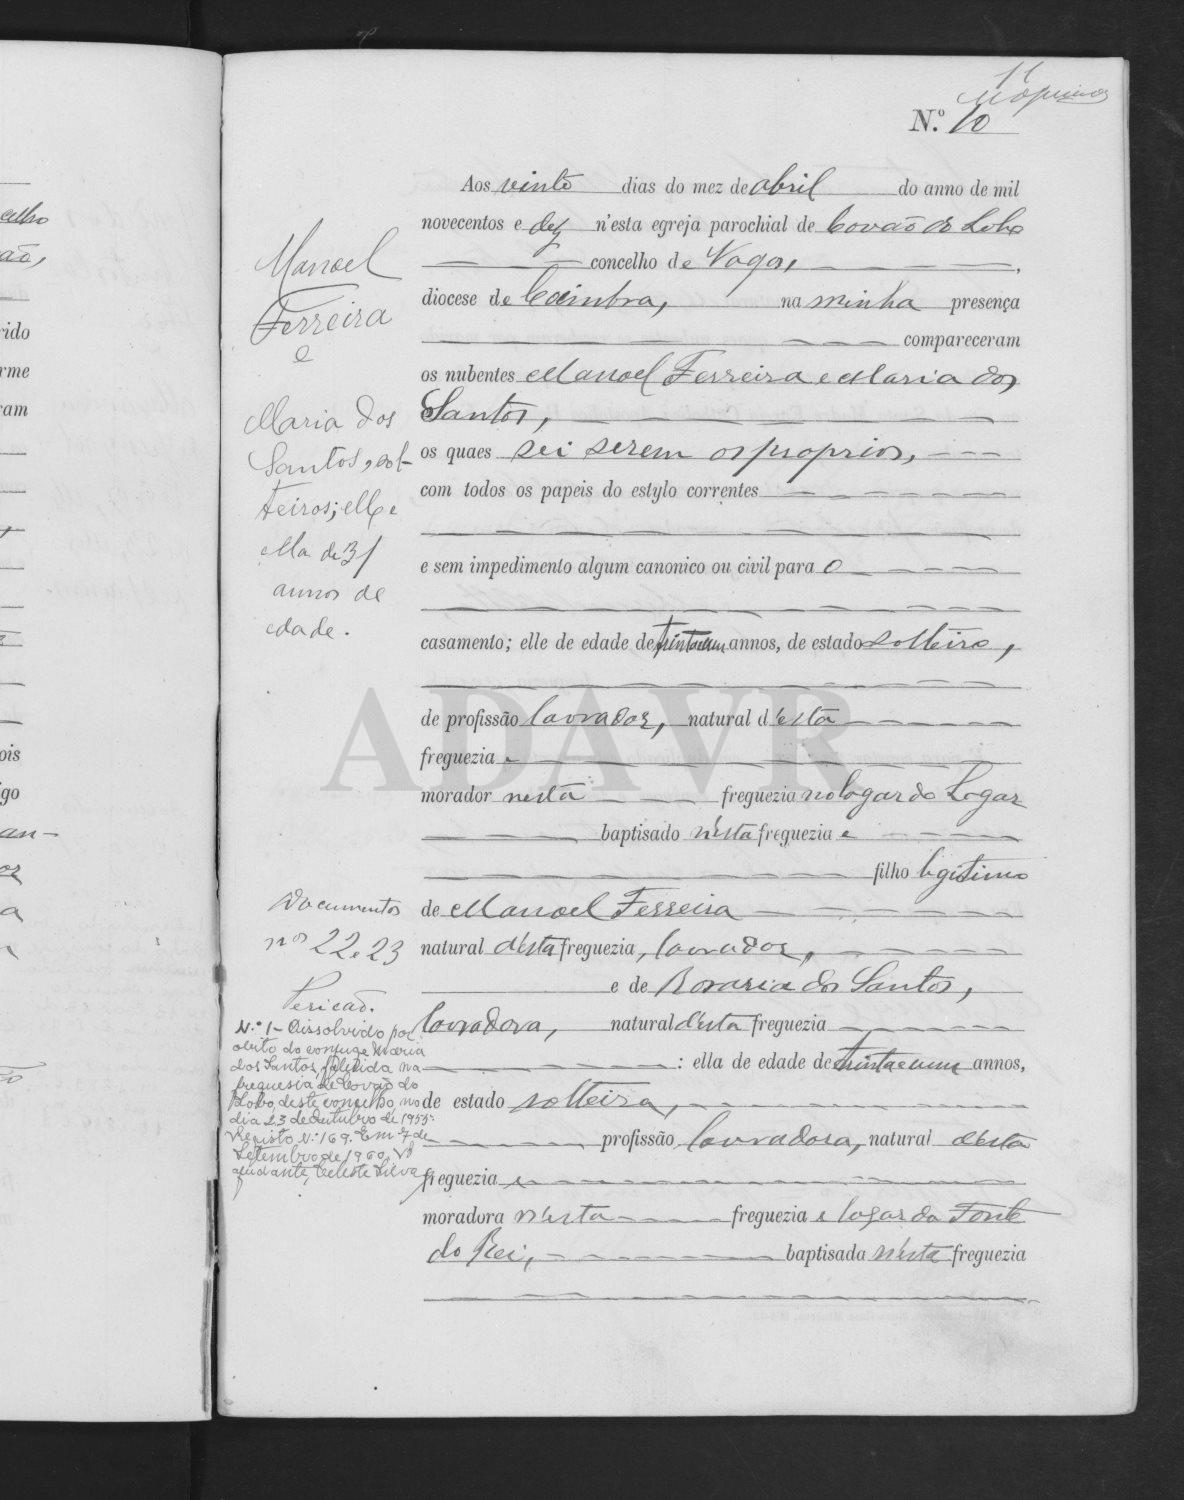 11
N.º 10
Aos vinte dias do mez de abril do anno de mil
novecentos e dez n'esta egreja parochial de Covão do Lobo
concelho de Vagos,
diocese de Coimbra, na minha presença
compareceram
os nubentes Manoel Ferreira e Maria dos
Santos,
os quaes sei serem os proprios,
com todos os papeis do estylo correntes
e sem impedimento algum canonico ou civil para o
casamento; elle de edade de trinta e um annos, de estado solteiro,
de profissão lavrador, natural d'esta
freguezia e
morador nesta freguezia no logar do Logar
baptisado n'esta freguezia e
filho legitimo
de Manoel Ferreira
natural d'esta freguezia, lavrador,
e de Rosaria dos Santos,
lavradora, natural d'esta freguezia
: ella de edade de trinta e um annos,
de estado solteira,
profissão lavradora, natural d'esta
freguezia e
moradora n'esta freguezia e logar da Fonte
do Rei, baptisada n'esta freguezia
Manoel
Ferreira
e
Maria dos
Santos, sol-
teiros; elle e
ella de 31
annos de
edade.
Documentos
nos 22 e 23
Pericão.
N.º 1 - Dissolvido por
obito do conjuge Maria
dos Santos, falecida na
freguesia de Covão do
Lobo, deste concelho no
dia 23 de Outubro de 1955:
Registo N.º 169. Em 7 de
Setembro de 1960. O
ajudante, Celeste Silva
ADAVR
celho
ão,
rido
rme
ram
ois
go
an-
or
a